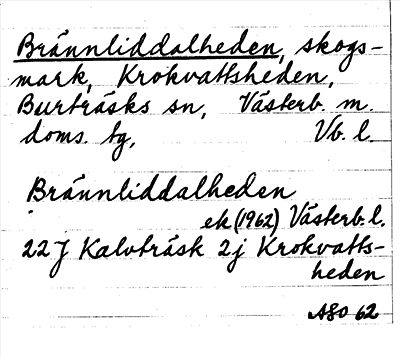 Brännliddalheden, skogs-
mark, Krokvattsheden,
Burträsks sn, Västerb. m.
doms. tg, Vb. l.
Brännliddalheden
ek (1962) Västerb. l.
22J Kalvträsk 2j Krokvatts-
heden
ASO 62